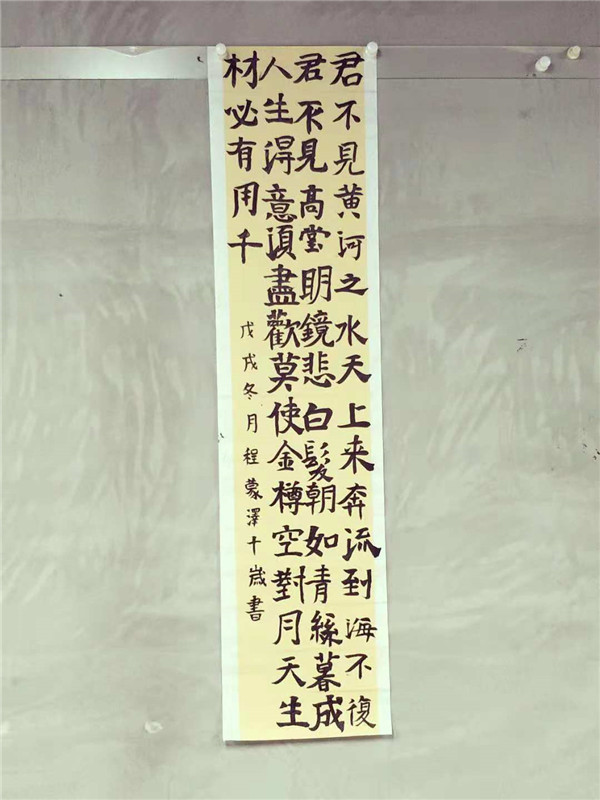 君不見黄河之水天上来奔流到海不復
君不見高堂明鏡悲白髮朝如青絲暮成
人生淂意湏盡歡莫使金樽空對月天生
材必有用千
戊戌冬月程蒙澤十歲書